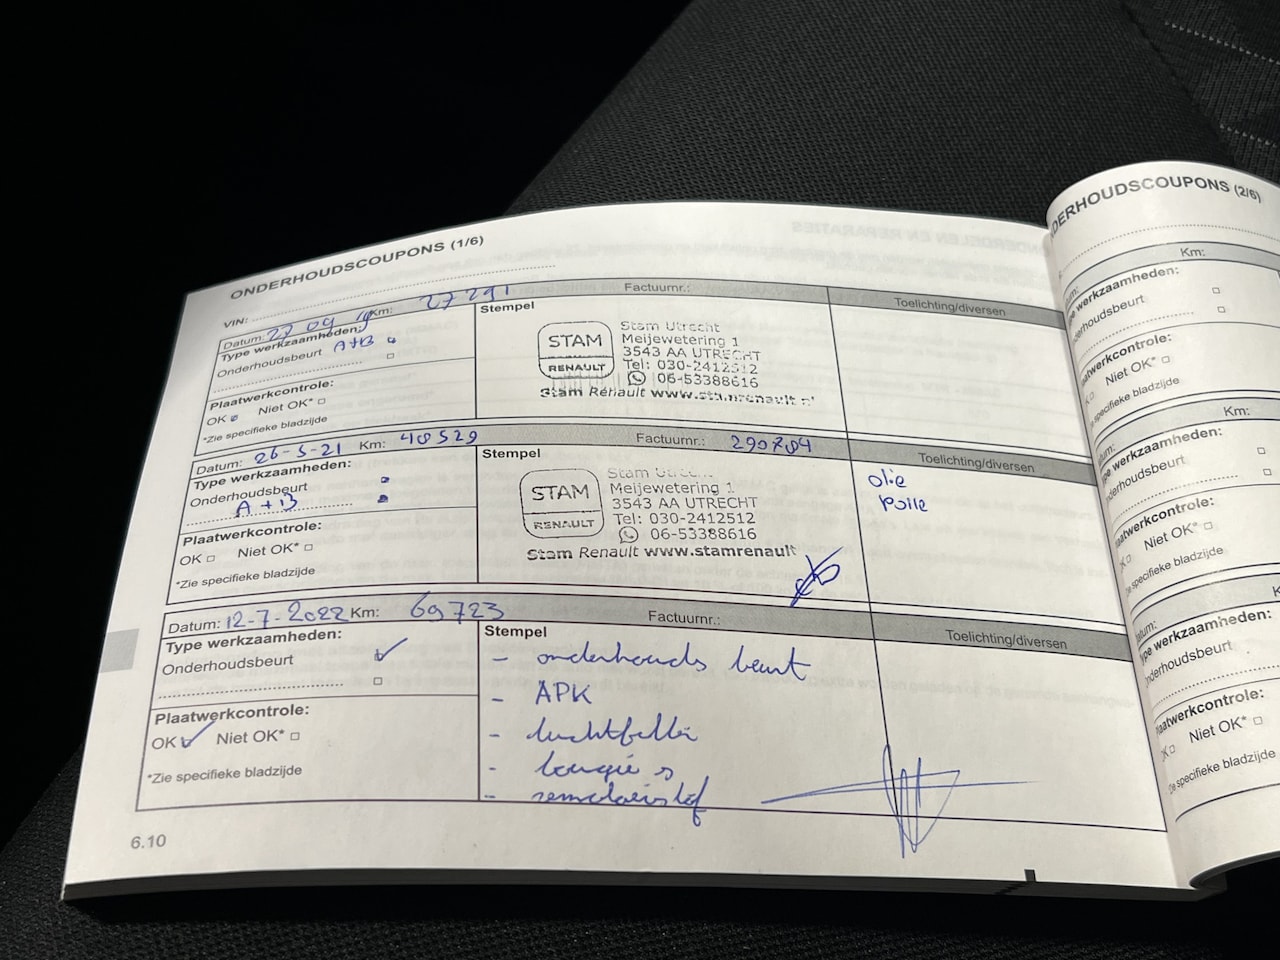 ONDERHOUDSCOUPONS (1/6)
VIN:
Datum: 22 09 19 Km: 27291 Factuurnr.: Toelichting/diversen
Type werkzaamheden:
Onderhoudsbeurt A+B
Plaatwerkcontrole:
OK Niet OK*
*Zie specifieke bladzijde
Stempel
STAM
RENAULT
Stam Utrecht
Meijewetering 1
3543 AA UTRECHT
Tel: 030-2412512
06-53388616
Stam Renault www.stamrenault.nl
Datum: 26-5-21 Km: 40529 Factuurnr.: 290704 Toelichting/diversen
Type werkzaamheden:
Onderhoudsbeurt
A+B
Plaatwerkcontrole:
OK Niet OK*
*Zie specifieke bladzijde
Stempel
STAM
RENAULT
Stam Utrecht
Meijewetering 1
3543 AA UTRECHT
Tel: 030-2412512
06-53388616
Stam Renault www.stamrenault
olie
Datum: 12-7-2022 Km: 69723 Factuurnr.: Toelichting/diversen
Type werkzaamheden:
Onderhoudsbeurt
Plaatwerkcontrole:
OK Niet OK*
*Zie specifieke bladzijde
Stempel
- onderhouds beurt
- APK
- luchtfilter
- bougie s
- remvloeistof
6.10
DERHOUDSCOUPONS (2/6)
Km:
werkzaamheden:
derhoudsbeurt
aatwerkcontrole:
Niet OK*
specifieke bladzijde
Km:
werkzaamheden:
derhoudsbeurt
aatwerkcontrole:
Niet OK*
specifieke bladzijde
Datum:
ype werkzaamheden:
nderhoudsbeurt
aatwerkcontrole:
Niet OK*
specifieke bladzijde